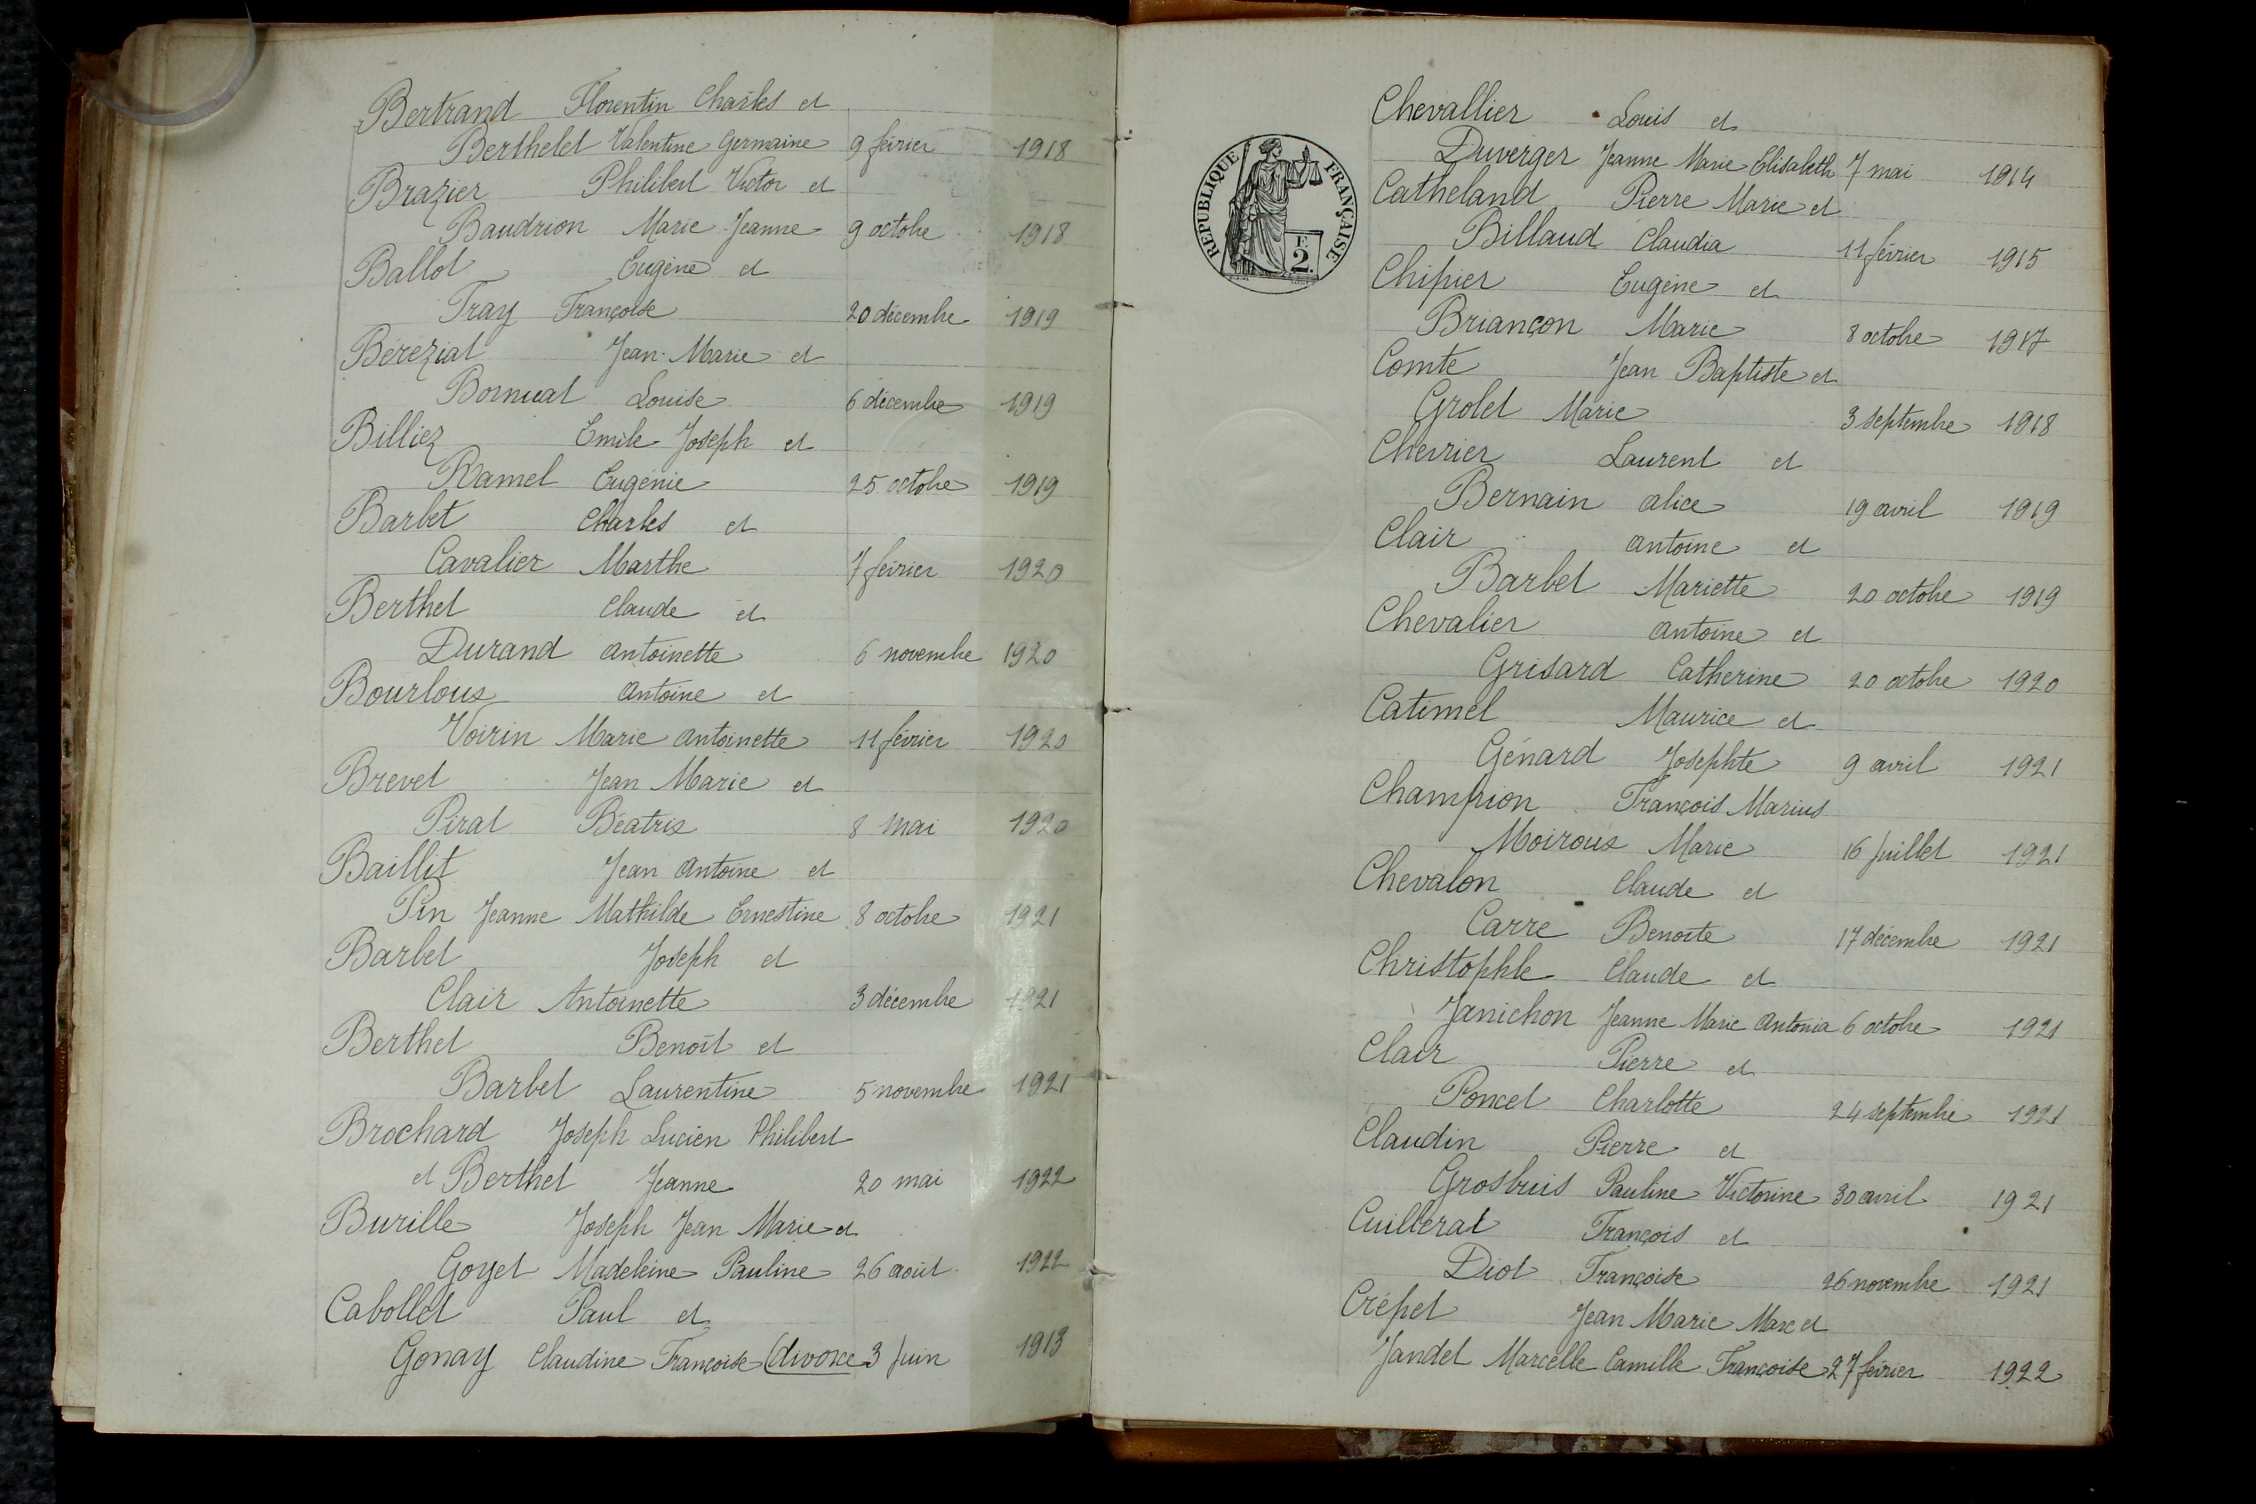 Bertrand Florentin Charles et
Berthelet Valentine Germaine 9 février 1918
Brazier Philibert Victor et
Baudrion Marie Jeanne 9 octobre 1918
Ballot Eugène et
Tray Françoise 20 décembre 1919
Béréziat Jean-Marie et
Bornuat Louise 6 décembre 1919
Billiez Emile Joseph et
Ramel Eugénie 25 octobre 1919
Barbet Charles et
Cavalier Marthe 7 février 1920
Berthet Claude et
Durand Antoinette 6 novembre 1920
Bourloux Antoine et
Voirin Marie Antoinette 11 février 1920
Brevet Jean Marie et
Pirat Béatrix 8 mai 1920
Baillit Jean Antoine et
Pin Jeanne Mathilde Ernestine 8 octobre 1921
Barbet Joseph et
Clair Antoinette 3 décembre 1921
Berthet Benoît et
Barbet Laurentine 5 novembre 1921
Brochard Joseph Lucien Philibert
et Berthet Jeanne 20 mai 1922
Burille Joseph Jean Marie et
Goyet Madeleine Pauline 26 août 1922
Cabollet Paul et
Gonay Claudine Françoise (divorce 3 juin 1913
RÉPUBLIQUE FRANÇAISE
F.
2.
Chevallier Louis et
Duverger Jeanne Marie Elisabeth 7 mai 1914
Catheland Pierre Marie et
Billaud Claudia 11 février 1915
Chipier Eugène et
Briançon Marie 8 octobre 1917
Comte Jean Baptiste et
Grolet Marie 3 septembre 1918
Chevrier Laurent et
Bernain Alice 19 avril 1919
Clair Antoine et
Barbet Mariette 20 octobre 1919
Chevalier Antoine et
Grisard Catherine 20 octobre 1920
Catimel Maurice et
Génard Josephte 9 avril 1921
Champion François Marius
Moiroux Marie 16 juillet 1921
Chevalon Claude et
Carre Benoite 17 décembre 1921
Christophle Claude et
Janichon Jeanne Marie Antonia 6 octobre 1921
Clair Pierre et
Poncet Charlotte 24 septembre 1921
Claudin Pierre et
Grosbuis Pauline Victorine 30 avril 1921
Cuillerat François et
Diot Françoise 26 novembre 1921
Crépet Jean Marie Marc et
Jandet Marcelle Camille Françoise 27 février 1922